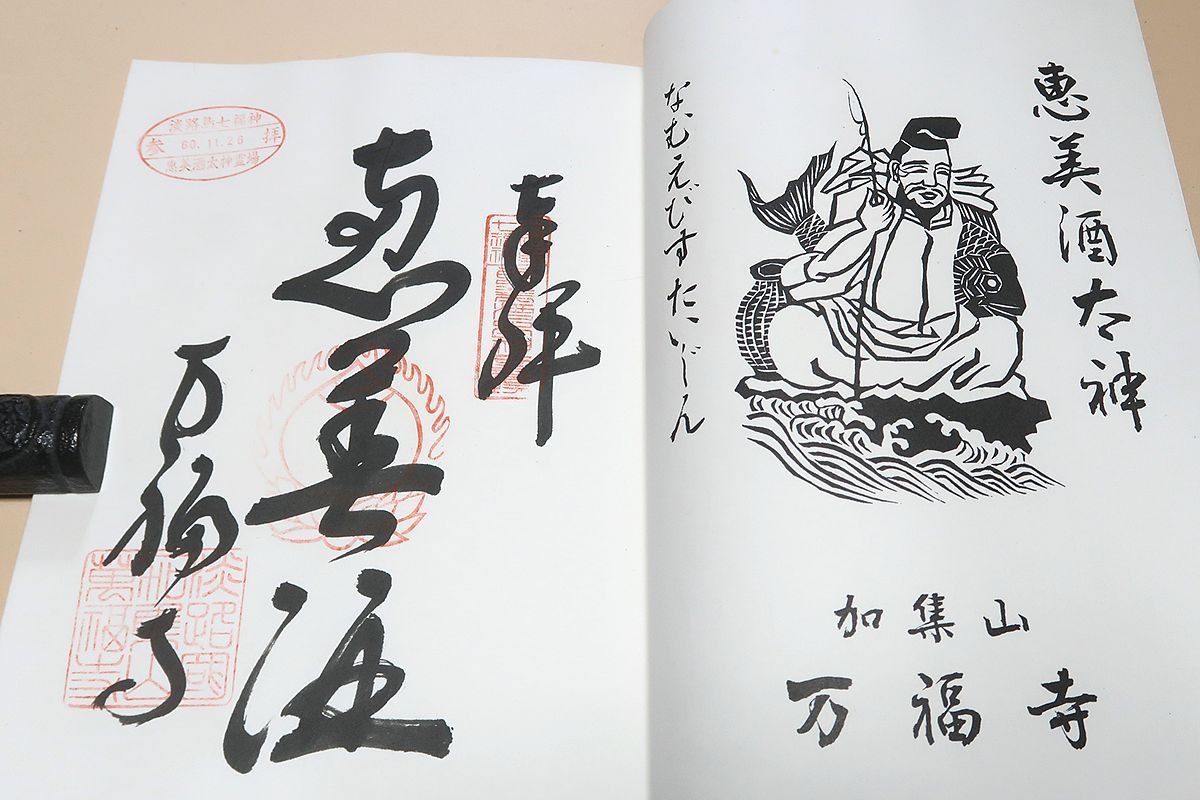 恵美酒太神
なむえびすたいじん
加集山
万福寺
奉拝
恵美酒
万福寺
淡路島七福神
参拝
60.11.26
恵美酒太神霊場
淡路國
加集山
萬福寺